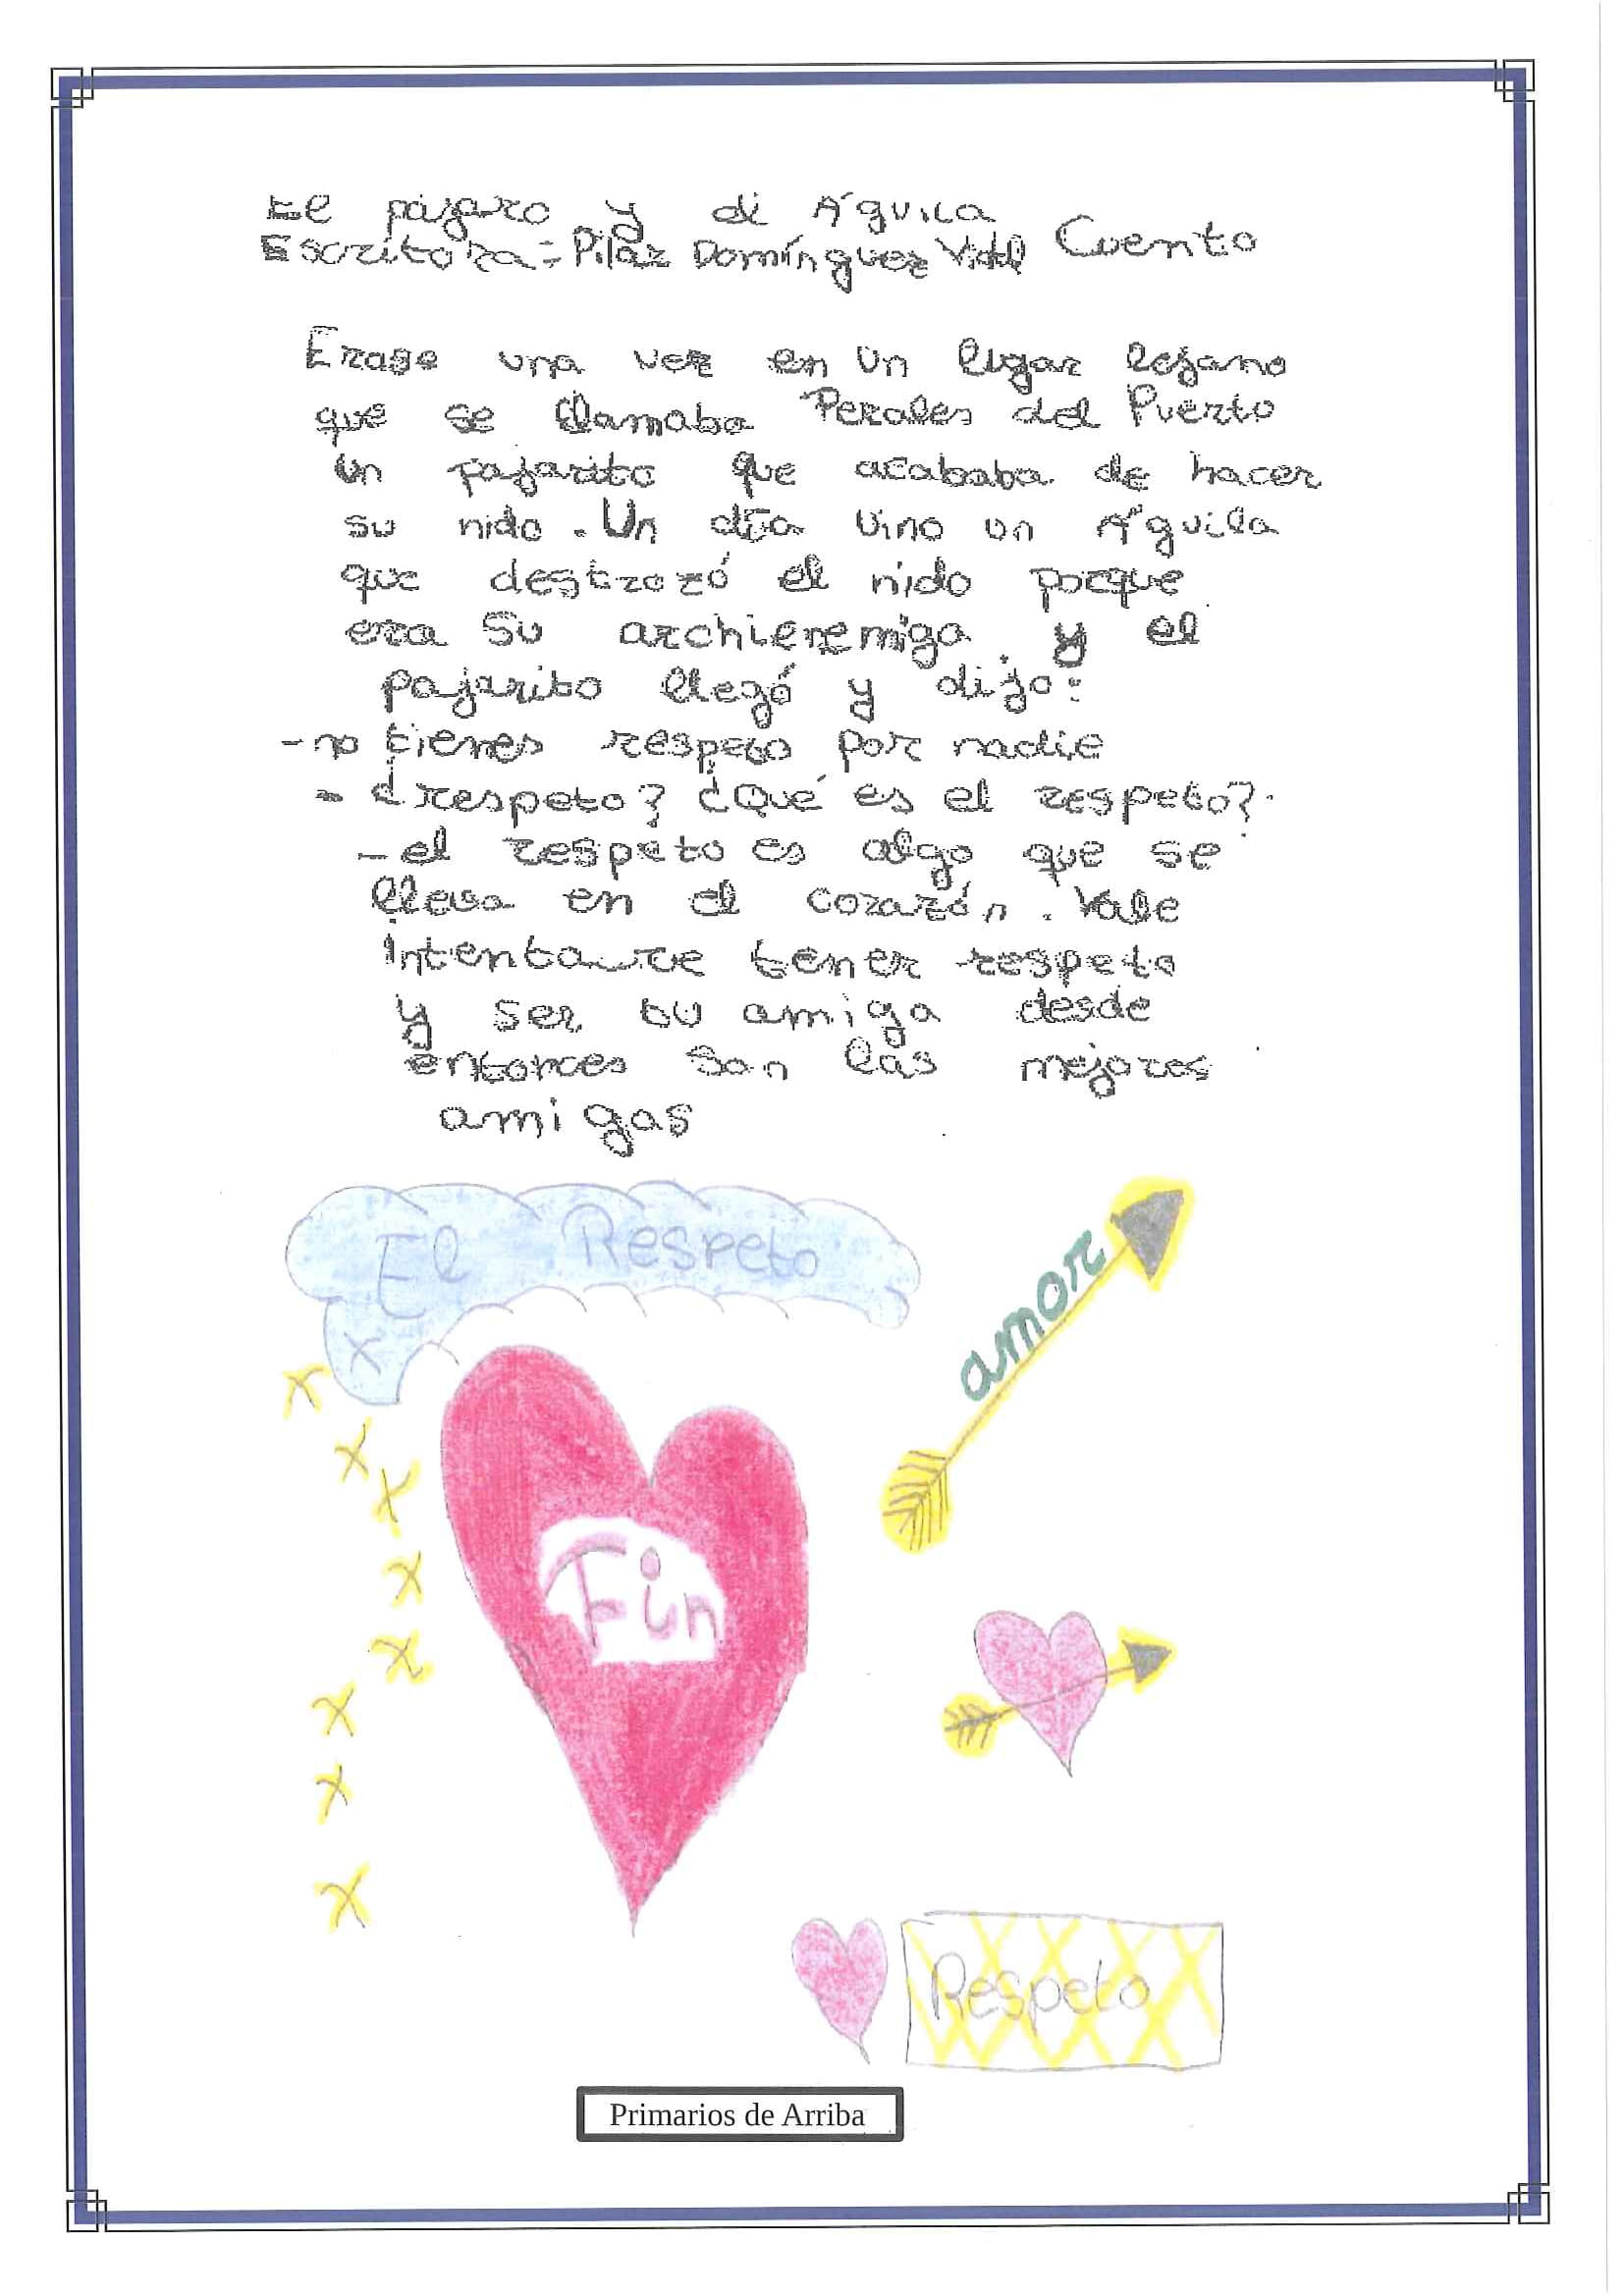 El pájaro y di Águila
Escritora = Pilar Domínguez Vidal Cuento
Erase una vez en un lugar lejano
que se llamaba Perales del Puerto
un pajarito que acababa de hacer
su nido. Un día vino un Águila
que destrozó el nido porque
era su archienemiga. y el
pajarito llegó y dijo:
- no tienes respeto por nadie
- ¿respeto? ¿Qué es el respeto?
- el respeto es algo que se
lleva en el corazón. Vale
intentare tener respeto
y ser tu amiga desde
entonces son las mejores
amigas
El Respeto
amor
Fin
Respeto
Primarios de Arriba